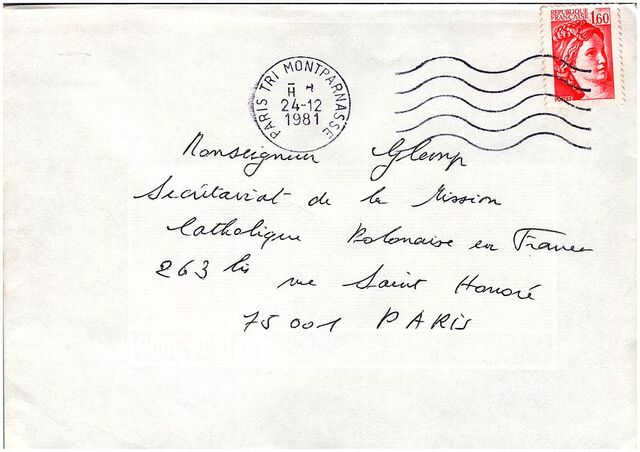 REPUBLIQUE
FRANÇAISE 1,60
POSTES
PARIS TRI MONTPARNASSE
H
24-12
1981
Monseigneur Glemp
Secrétariat de la Mission
Catholique Polonaise en France
263 bis rue Saint Honoré
75001 PARIS